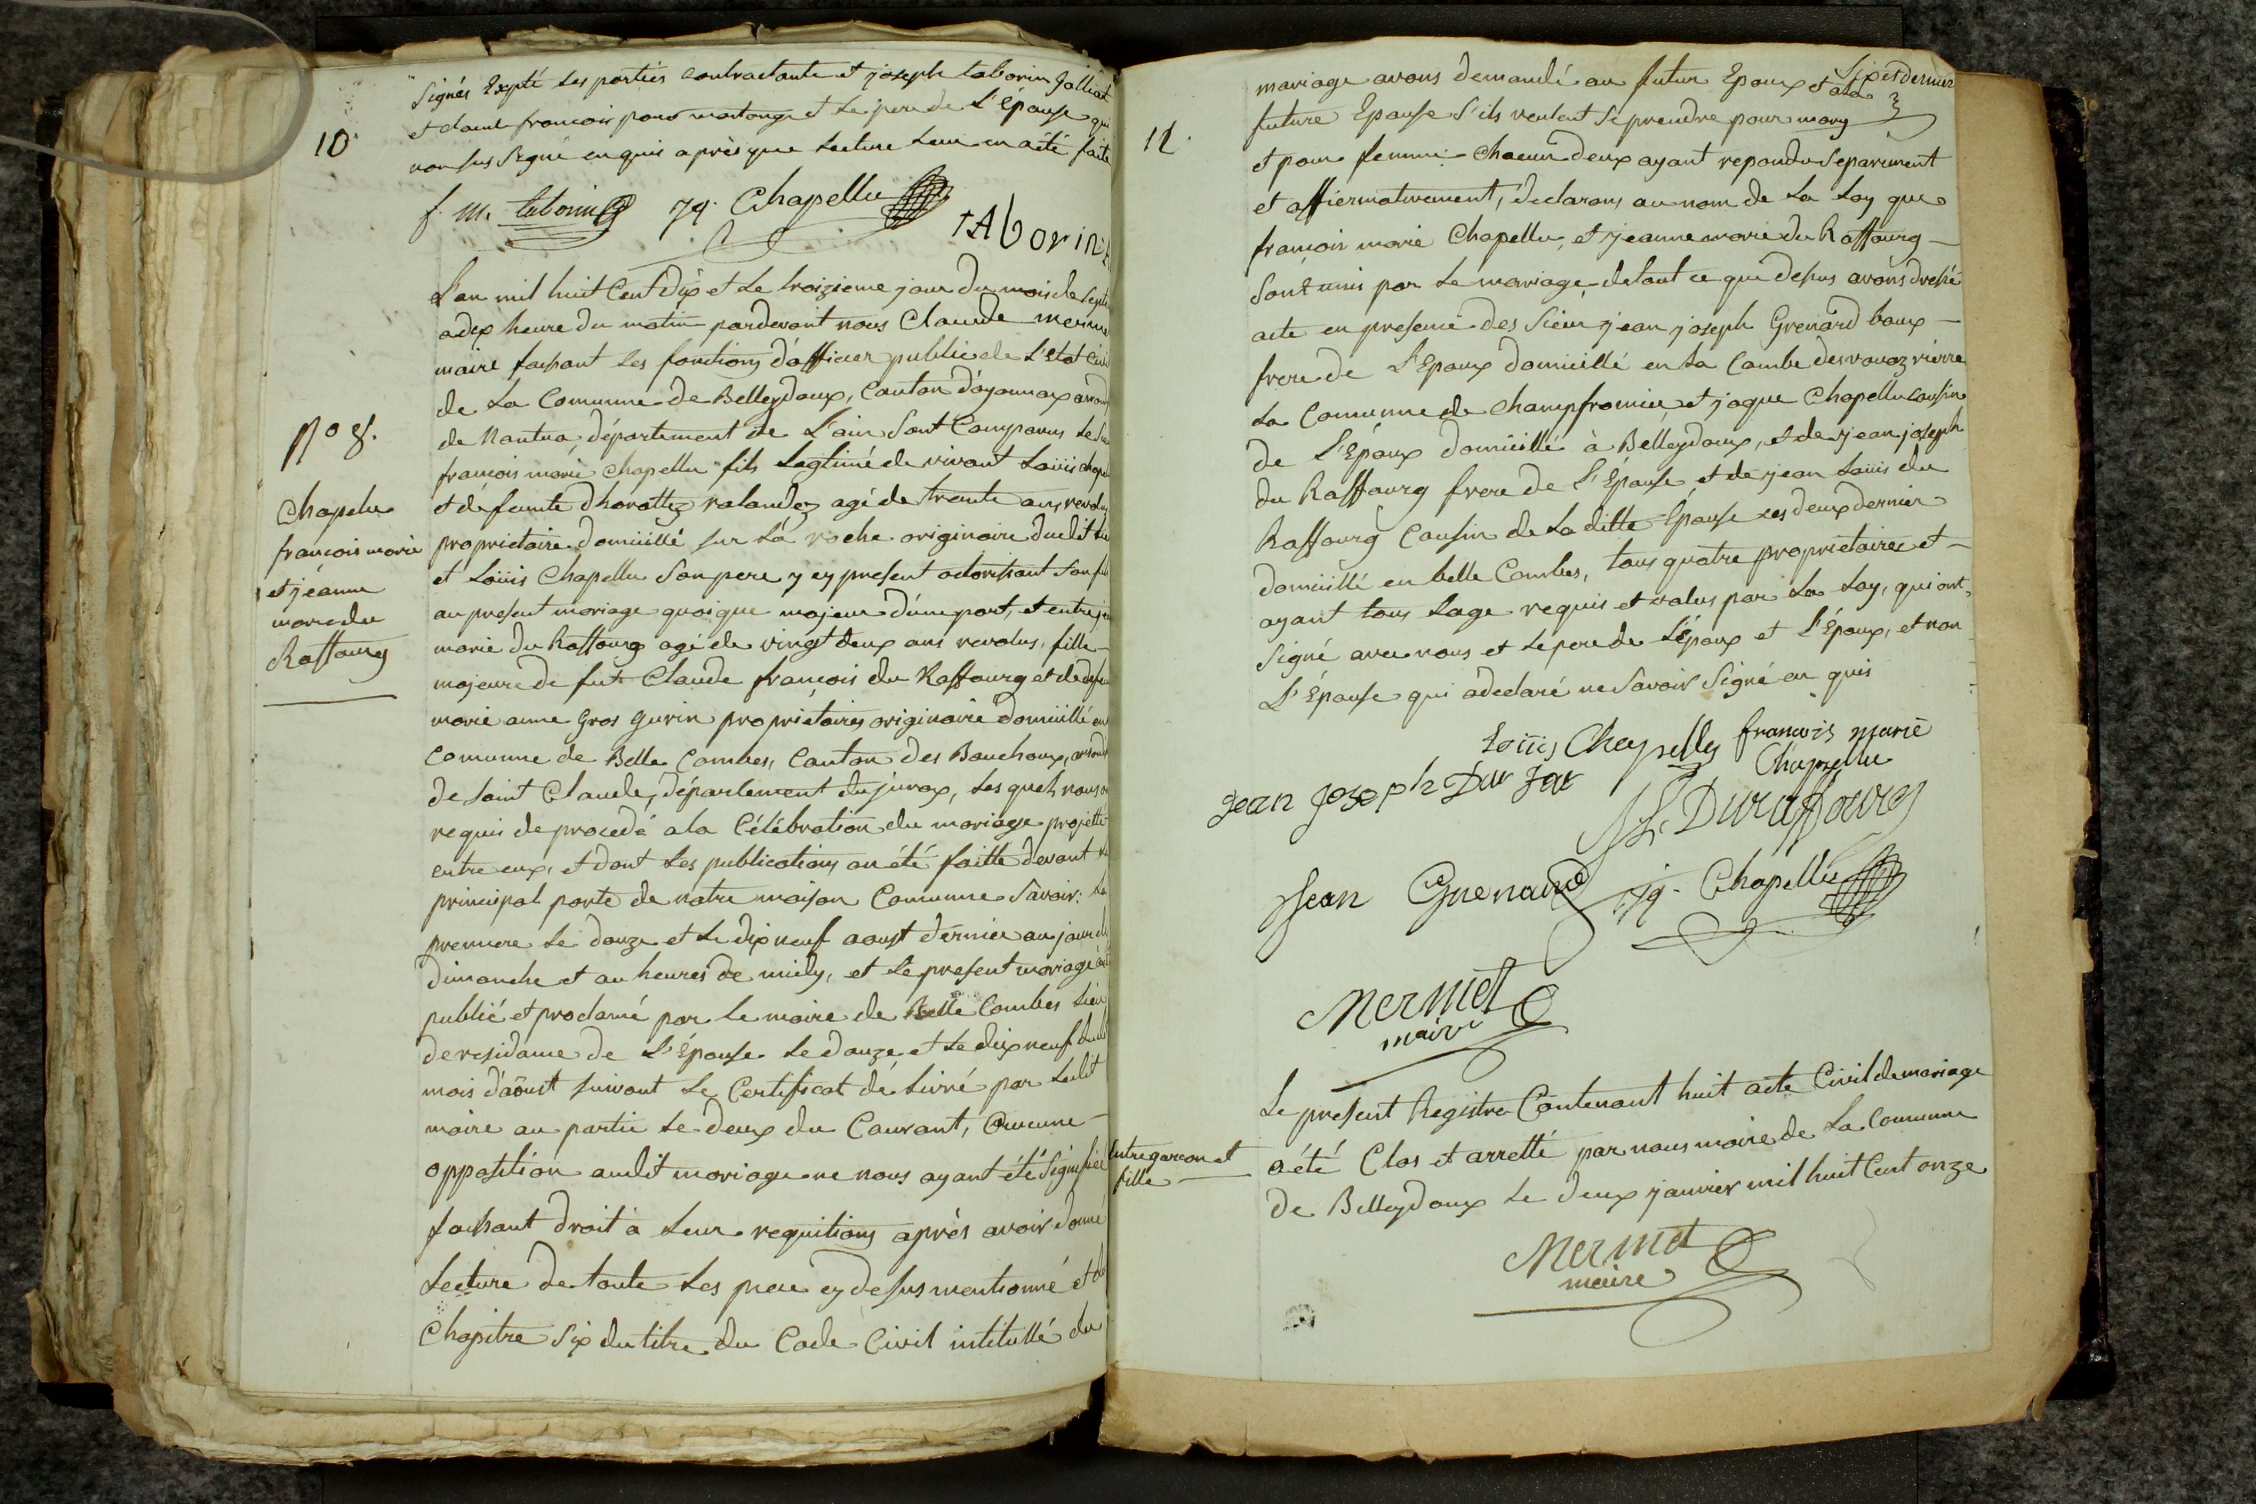 Signés Expté les partiés contractante et joseph taborin Jalliat
et claude francois pons martonge et le pere de L'Épouse qui
non sus Signé enquis après que Lecture leur en a été faite
10.
f. m. taborin Jq. Chapellu
tAborin
L'an mil huit Cent dix et le troizieme jour du mois de Septe
a dix heure du matin pardevant nous Claude mermet
maire faisant les fonctions d'officier public de L'etat civil
de La Comunne de Belleydoux, Canton d'oyonnax arrond
de Nantua, département de L'ain Sont Comparus Le Sieur
No 8.
françois marie chapellu fils Legtimé de vivant Loüis chape
et défeunte dhorottez valandez agé de trente ans revolus
proprietaire domiüllé sur La roche originaire dudit lieu
et Loüis Chapellu Son pere y cy present autorisant Son fils
au present mariage quoique majeur d'une part, et entre jea
marie du Raffourg agé de vingt deux ans revolus, fille
majeure de fut Claude françois du Raffourg et de defu
marie anne Gros Gurin proprietaires originaire domiüllé en
Chapelu
françois marie
et jéanne
marie du
Raffourg
Comunne de Belle Combes, Canton des Bouchoux, arrond
de Saint Claude, département du jurax, Les quels nous on
requis de procedé a la Célébration du mariage projetté
entre eux, et dont Les publications on été faitte devant la
principal porte de notre maison Comunne Savoir: La
premiere Le douze et Le dix neuf aoust dernier au jour de
dimanche et au heures de midy, et Le present mariage a été
publié et proclamé par Le maire de Belle Combes Lieu
de residance de L'Épouse Le douze et Le dix neuf dudit
mois d'aoust suivant Le Certificat dé Livré par Ledit
maire au partie Le deux du Courant, Aucunne
opposition audit mariage ne nous ayant été Signifiée
faisant droit à Leur requitions après avoir donné
Lecture de toute Les piece cy desus mentionné et du
Chapitre Six du titre du Code Civil intitullé du
Six et dernier
mariage avons demandé au futur Epoux et a la
future Epouse S'ils veulent Se prendre pour mary
12.
et pour femme chacun deux ayant repondu Separement
et affiermativement, declarons au nom de La Loy que
françois marie Chapellu, et jeanne marie du Raffourg
Sont unis par Le mariage de tout ce que desus avons dressé
acte en presence des Sieur jean joseph Grenard baux
frere de L'Epoux domiüllé en La Combe
La Comunne de champfromier et jaque Chapellu cousin
de L'Epoux domiüllé à Belleydoux, et de jean joseph
du Raffourg frere de L'Épouse et de jean Louis du
Raffourg Cousin de La ditte Épouse Les deux dernier
domiüllé en belle Combes, tous quatre proprietaires et
ayant tous Lage requis et valus par La Loy, qui ont
Signé avec nous et Le pere de L'époux et L'Époux, et non
L'Épouse qui a declaré ne Savoir Signé en quis
Loüis Chapellu françois marie
Chapellu
jean joseph Dur Four
JL. Duraffourg
Jean Grenard Jq. Chapellu
Mermet
maire
Le present Registre Contenant huit acte Civil de mariage
Entre garcon et
fille
a été Clos et arretté par nous maire de La Comunne
de Belleydoux Le deux janvier mil huit Cent onze
Mermet
maire